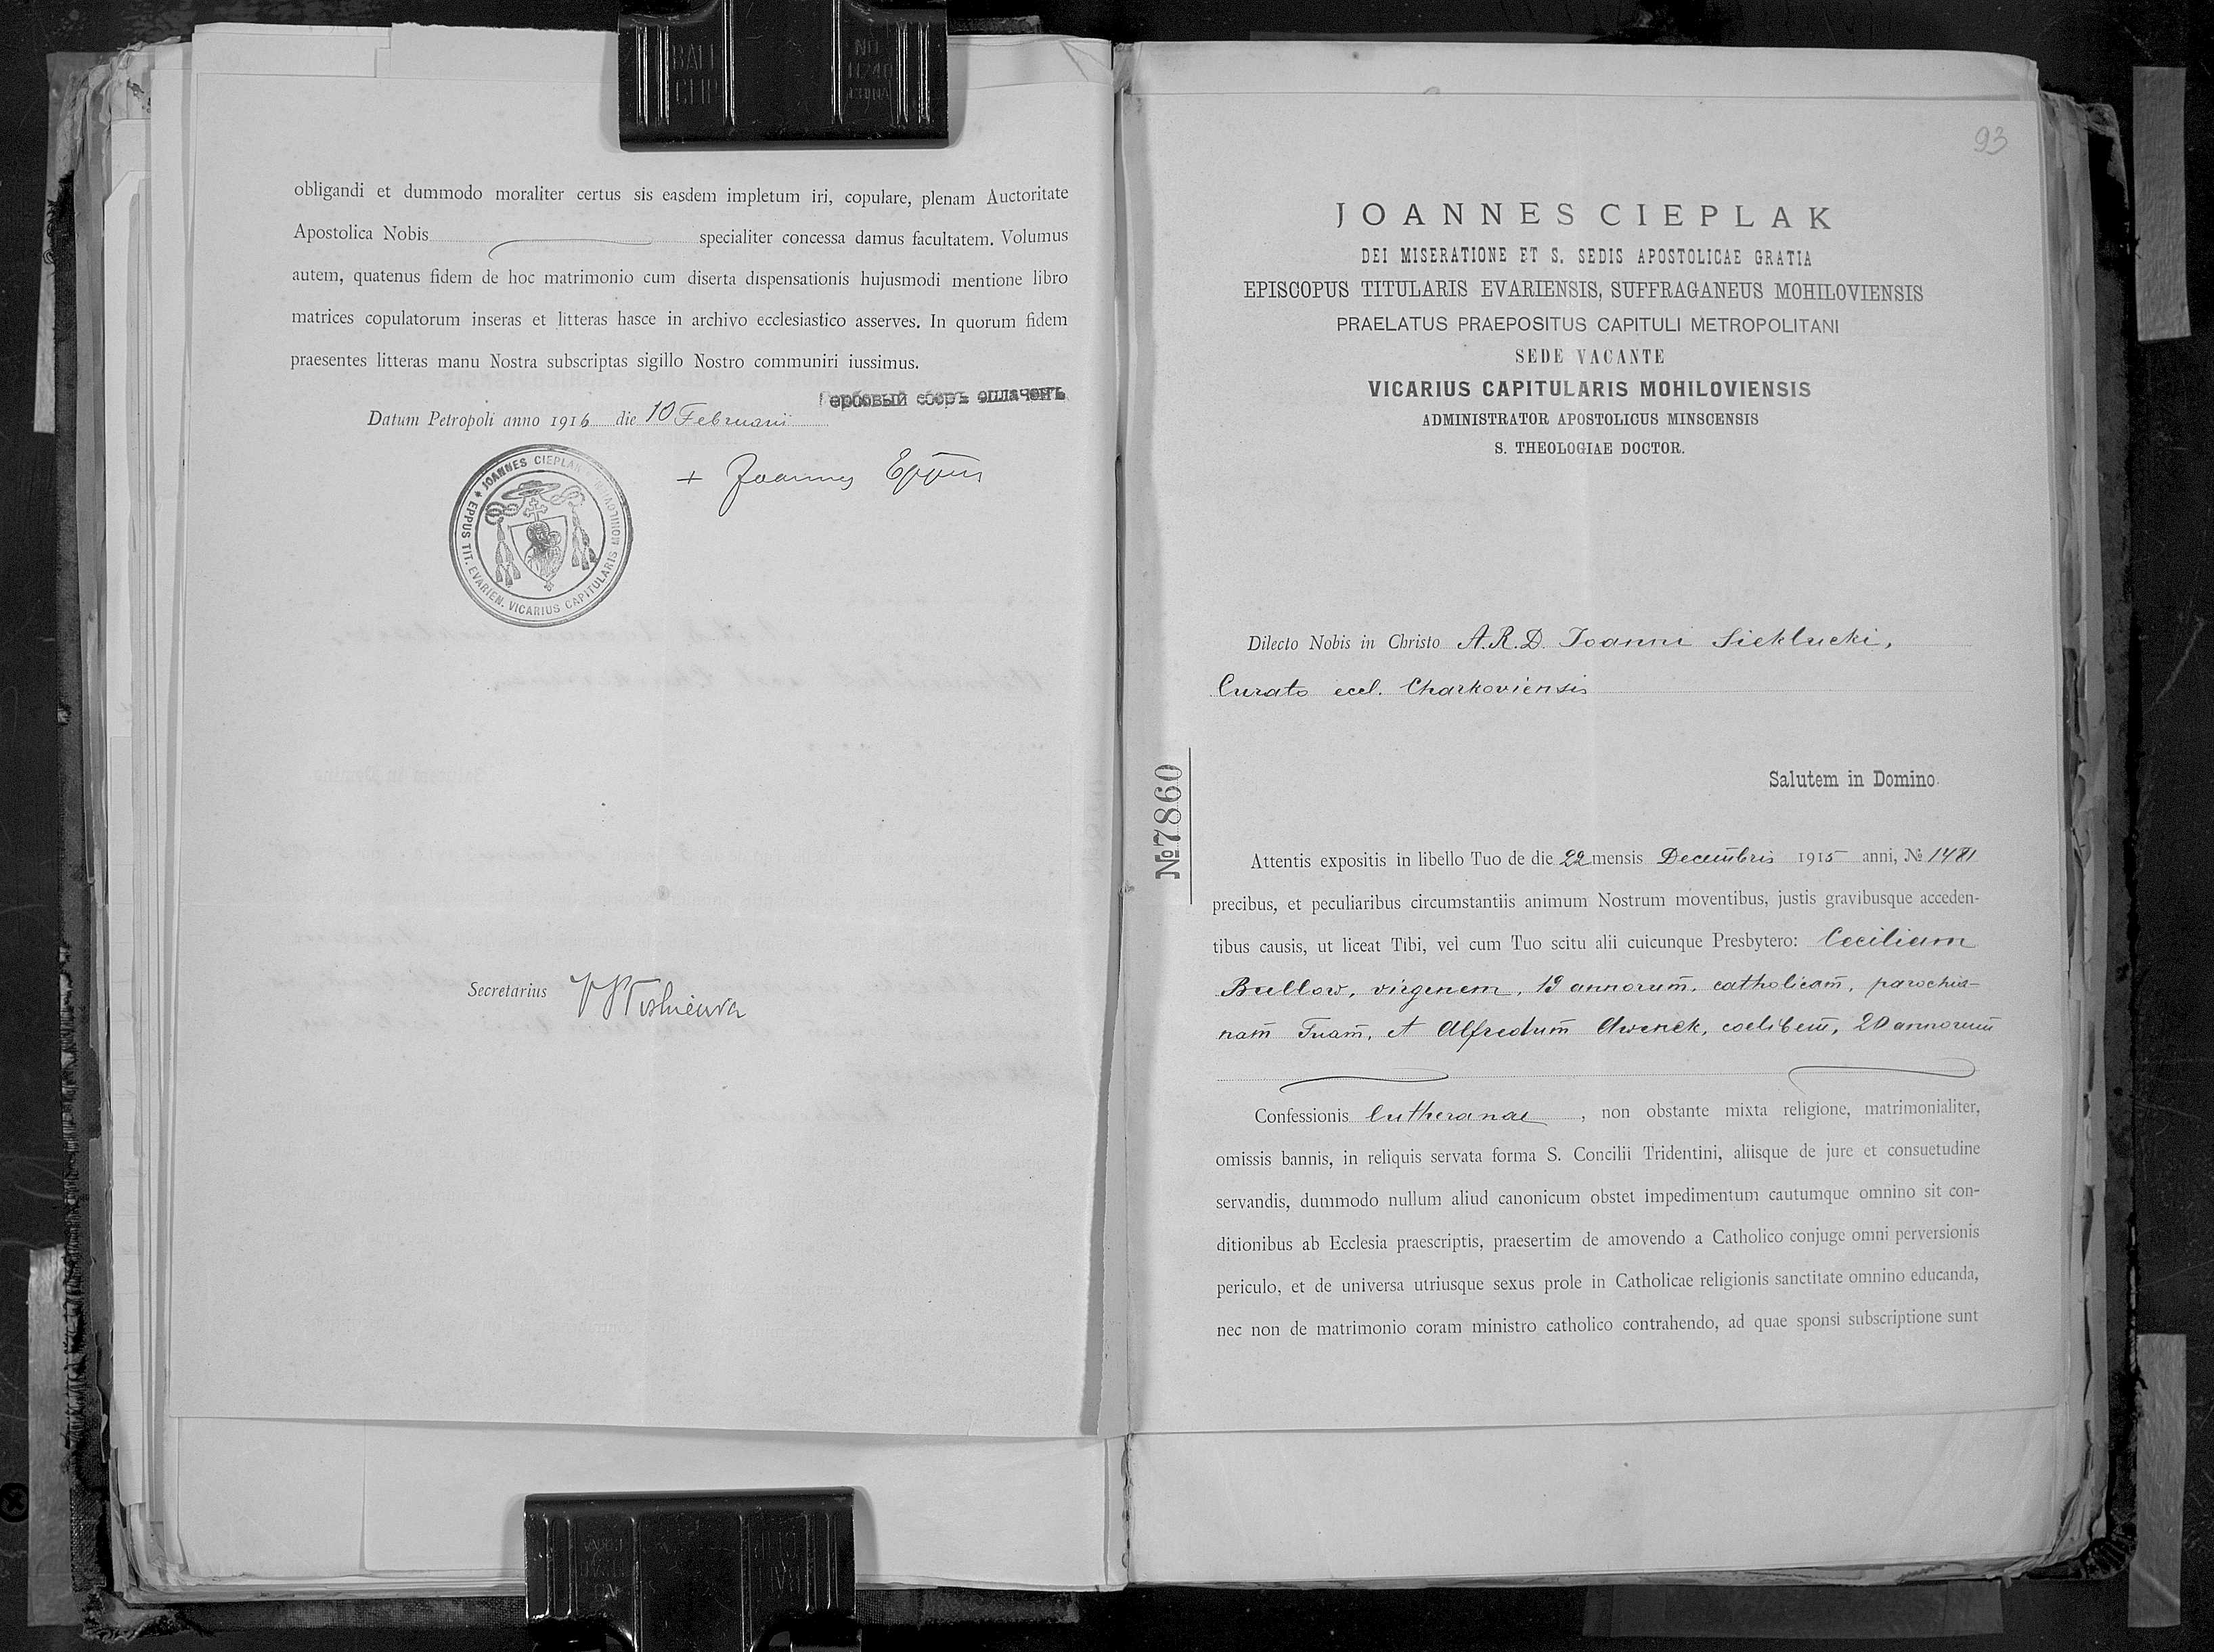 obligandi et dummodo moraliter certus sis easdem impletum iri, copulare, plenam Auctoritate
Apostolica Nobis specialiter concessa damus facultatem. Volumus
autem, quatenus fidem de hoc matrimonio cum diserta dispensationis hujusmodi mentione libro
matrices copulatorum inseras et litteras hasce in archivo ecclesiastico asserves. In quorum fidem
praesentes litteras manu Nostra subscriptas sigillo Nostro communiri iussimus.
ербовый сборъ оплаченъ
Datum Petropoli anno 1916 die 10 Februarii
+ Joannes Eppus
JOANNES CIEPLAK
EPPUS TIT. EVARIEN. VICARIUS CAPITULARIS MOHILOVIEN.
Secretarius
93
JOANNES CIEPLAK
DEI MISERATIONE ET S. SEDIS APOSTOLICAE GRATIA
EPISCOPUS TITULARIS EVARIENSIS, SUFFRAGANEUS MOHILOVIENSIS
PRAELATUS PRAEPOSITUS CAPITULI METROPOLITANI
SEDE VACANTE
VICARIUS CAPITULARIS MOHILOVIENSIS
ADMINISTRATOR APOSTOLICUS MINSCENSIS
S. THEOLOGIAE DOCTOR.
Dilecto Nobis in Christo A.R.D. Joanni Sieklucki,
Curato eccl. Charkoviensis
Salutem in Domino.
№ 7860
Attentis expositis in libello Tuo de die 22 mensis Decembris 1915 anni, № 1481
precibus, et peculiaribus circumstantiis animum Nostrum moventibus, justis gravibusque acceden-
tibus causis, ut liceat Tibi, vel cum Tuo scitu alii cuicunque Presbytero: Ceciliam
Bullow, virginem, 19 annorum̄, catholicam̄, parochia-
nam̄ Tuam̄, et Alfredum̄ Awenek, coelibem̄, 20 annorum̄
Confessionis lutheranae, non obstante mixta religione, matrimonialiter,
omissis bannis, in reliquis servata forma S. Concilii Tridentini, aliisque de jure et consuetudine
servandis, dummodo nullum aliud canonicum obstet impedimentum cautumque omnino sit con-
ditionibus ab Ecclesia praescriptis, praesertim de amovendo a Catholico conjuge omni perversionis
periculo, et de universa utriusque sexus prole in Catholicae religionis sanctitate omnino educanda,
nec non de matrimonio coram ministro catholico contrahendo, ad quae sponsi subscriptione sunt